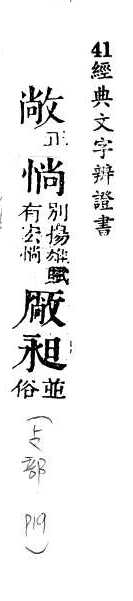 41 經典文字辨證書
敞正惝別揚雄賦有宏惝厰昶並俗
(攴部 P19)